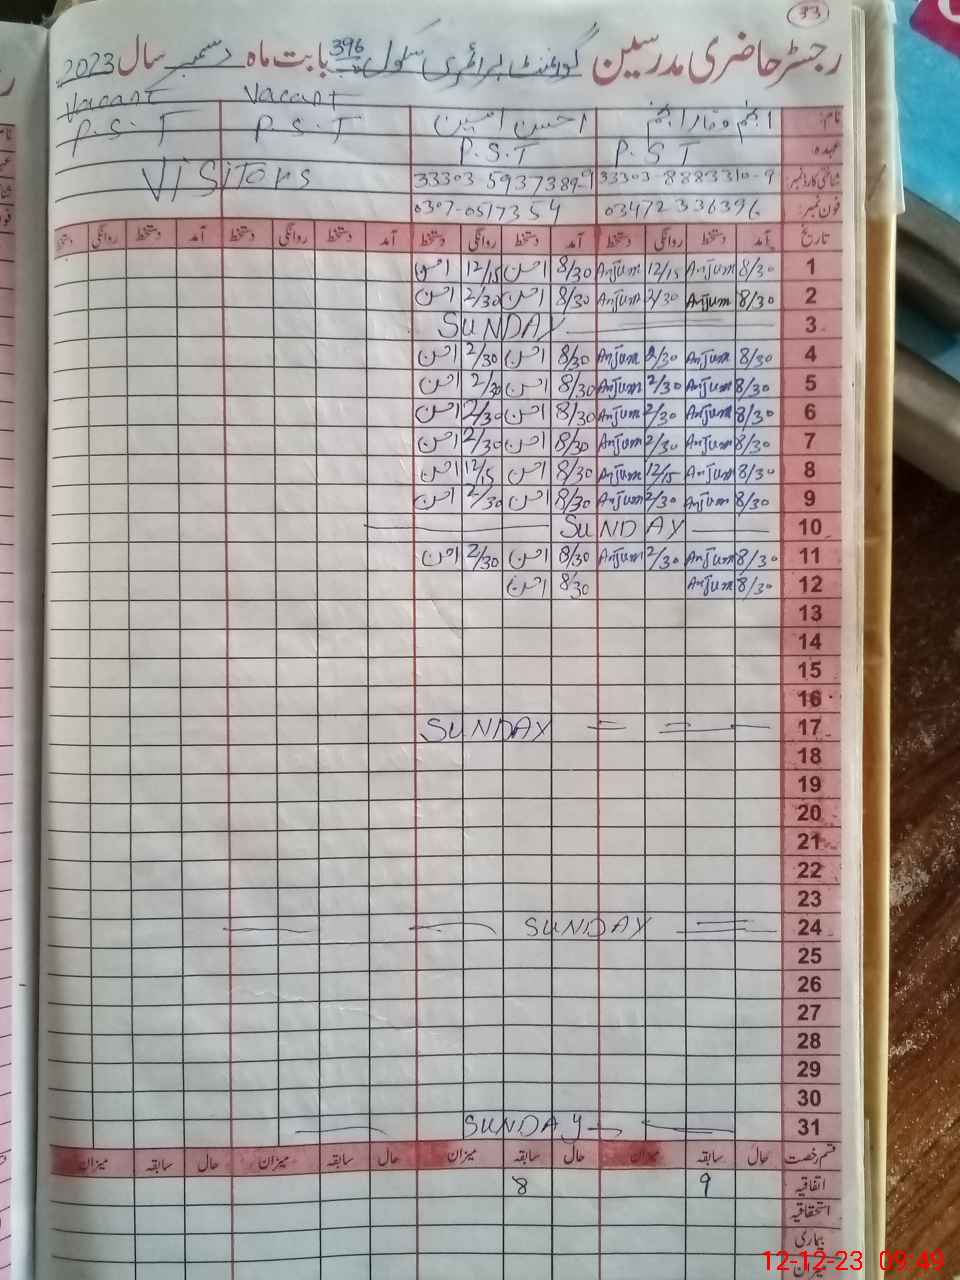 33
رجسٹر حاضری مدرسین گورنمنٹ پرائمری سکول 396 بابت ماہ دسمبر سال 2023
نام: احسن امین Vacant Vacant
عہدہ: P.S.T P.S.T P.S.T P.S.T
شناختی کارڈ نمبر: 33303-8883310-9 33303-5937389-9 Visitors
فون نمبر: 03472336396 0307-0517354
تاریخ آمد دستخط روانگی دستخط آمد دستخط روانگی دستخط آمد دستخط روانگی دستخط آمد دستخط روانگی دستخط
1 8/30 Anjum 12/15 Anjum 8/30 احسن 12/15 احسن
2 8/30 Anjum 2/30 Anjum 8/30 احسن 2/30 احسن
3 SUNDAY
4 8/30 Anjum 2/30 Anjum 8/30 احسن 2/30 احسن
5 8/30 Anjum 2/30 Anjum 8/30 احسن 2/30 احسن
6 8/30 Anjum 2/30 Anjum 8/30 احسن 2/30 احسن
7 8/30 Anjum 2/30 Anjum 8/30 احسن 2/30 احسن
8 8/30 Anjum 12/15 Anjum 8/30 احسن 12/15 احسن
9 8/30 Anjum 2/30 Anjum 8/30 احسن 2/30 احسن
10 SUNDAY
11 8/30 Anjum 2/30 Anjum 8/30 احسن 2/30 احسن
12 8/30 Anjum 8/30 احسن
13
14
15
16
17 SUNDAY
18
19
20
21
22
23
24 SUNDAY
25
26
27
28
29
30
31 SUNDAY
قسم رخصت حال سابقہ میزان حال سابقہ میزان حال سابقہ میزان حال سابقہ میزان
اتفاقیہ 9 8
استحقاقیہ
بیماری
میزان
12-12-23 09:49